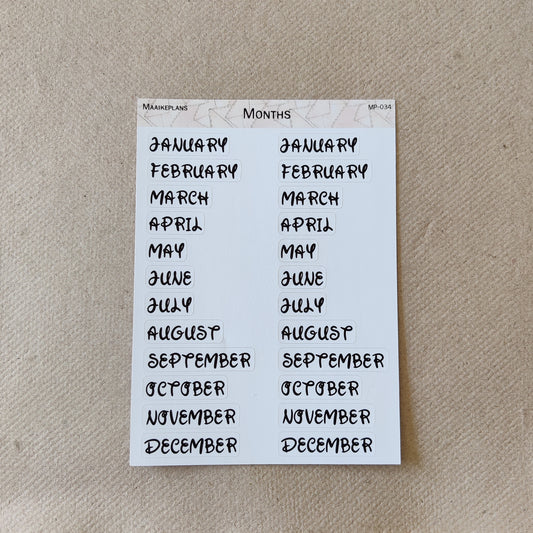 MAAIKEPLANS MONTHS MP-034
JANUARY JANUARY
FEBRUARY FEBRUARY
MARCH MARCH
APRIL APRIL
MAY MAY
JUNE JUNE
JULY JULY
AUGUST AUGUST
SEPTEMBER SEPTEMBER
OCTOBER OCTOBER
NOVEMBER NOVEMBER
DECEMBER DECEMBER